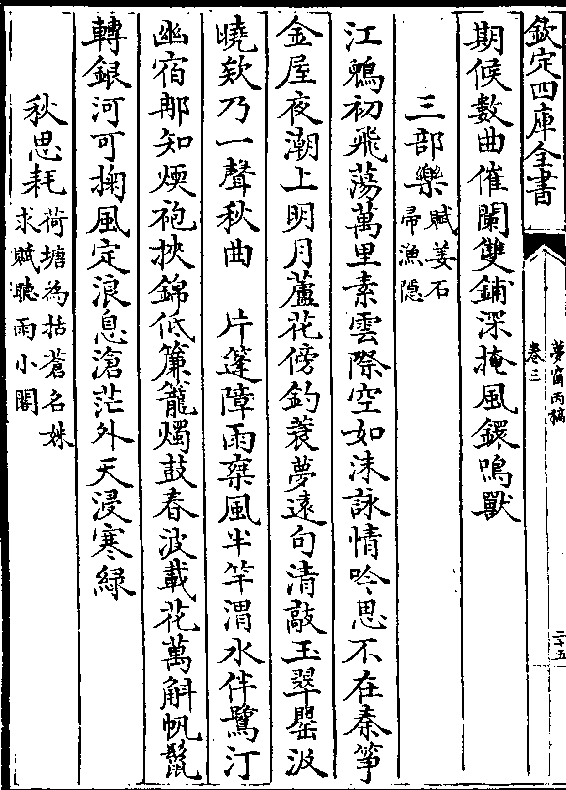 欽定四庫全書
夢窗丙稿
卷三
二十五
期候數曲催闌雙鋪深掩風鐶鳴獸
三部樂賦姜石帚漁隱
江鶂初飛蕩萬里素雲際空如沫詠情吟思不在秦箏
金屋夜潮上明月蘆花傍釣蓑夢遠句清敲玉翠罌汲
曉欸乃一聲秋曲　片篷障雨乘風半竿渭水伴鷺汀
幽宿那知煖袍挾錦低簾籠燭鼓春波載花萬斛帆鬣
轉銀河可掬風定浪息滄茫外天浸寒綠
秋思耗荷塘為括蒼名姝求賦聽雨小閣